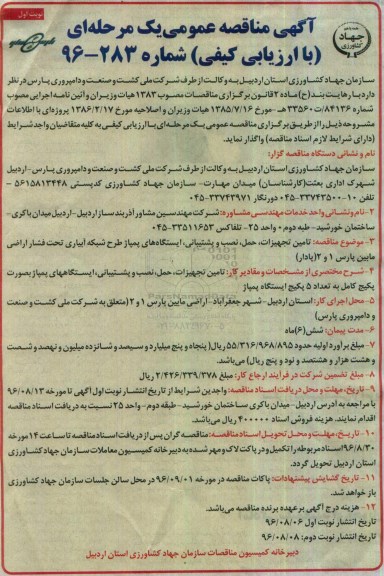 نوبت اول
جهاد کشاورزی
آگهی مناقصه عمومی یک مرحله‌ای
(با ارزیابی کیفی) شماره ۲۸۳-۹۶
سازمان جهاد کشاورزی استان اردبیل به وکالت از طرف شرکت ملی کشت و صنعت و دامپروری پارس در نظر
دارد با رعایت بند (ج) ماده ۲ قانون برگزاری مناقصات مصوب ۱۳۸۳ هیات وزیران و آئین نامه اجرایی مصوب
شماره ۸۴۱۳۶/ت۳۳۵۶۰ هـ -مورخ ۱۳۸۵/۷/۱۶ هیات وزیران و اصلاحیه مورخ ۱۳۸۶/۲/۱۷ پروژه‌ای با اطلاعات
مشروحه ذیل را از طریق برگزاری مناقصه عمومی یک مرحله‌ای با ارزیابی کیفی به کلیه متقاضیان واجد شرایط
(دارای شرایط لازم اسناد مناقصه) واگذار نماید.
نام و نشانی دستگاه مناقصه گزار:
سازمان جهاد کشاورزی استان اردبیل به وکالت از طرف شرکت ملی کشت و صنعت و دامپروری پارس - اردبیل
شهرک اداری بعثت (کارشناسان) میدان مهارت- سازمان جهاد کشاورزی کدپستی ۵۶۱۵۸۱۳۴۴۸ -
تلفن ۱۰-۳۳۷۴۳۵۰۰-۰۴۵ دورنگار ۳۳۷۴۳۹۷۱-۰۴۵
۲- نام و نشانی واحد خدمات مهندسی مشاوره: شرکت مهندسین مشاور آذربند ساز اردبیل - اردبیل میدان باکری-
ساختمان خورشید- طبقه دوم - واحد ۲۵- تلفاکس ۳۳۵۱۱۶۵۳-۰۴۵
۳- موضوع مناقصه: تامین تجهیزات، حمل، نصب و پشتیبانی، ایستگاههای پمپاژ طرح شبکه آبیاری تحت فشار اراضی
مابین پارس ۱ و ۲ (پادار)
۴- شرح مختصری از مشخصات و مقادیر کار: تامین تجهیزات، حمل، نصب و پشتیبانی، ایستگاههای پمپاژ بصورت
پکیج کامل به تعداد ۵ پکیج ایستگاه پمپاژ
۵- محل اجرای کار: استان اردبیل - شهر جعفرآباد - اراضی مابین پارس ۱ و ۲ (متعلق به شرکت ملی کشت و صنعت
و دامپروری پارس)
۶- مدت پیمان: شش (۶) ماه
۷- مبلغ برآورد اولیه حدود ۵۵/۳۱۶/۹۶۸/۸۹۵ ریال (پنجاه و پنج میلیارد و سیصد و شانزده میلیون و نهصد و شصت
و هشت هزار و هشتصد و نود و پنج ریال) می‌باشد.
۸- مبلغ تضمین شرکت در فرآیند ارجاع کار: مبلغ ۲/۴۲۶/۳۳۹/۳۷۸ ریال
۹- تاریخ، مهلت و محل دریافت اسناد مناقصه: واجدین شرایط از تاریخ انتشار نوبت اول آگهی تا مورخه ۹۶/۰۸/۱۳
با مراجعه به آدرس اردبیل - میدان باکری ساختمان خورشید - طبقه دوم - واحد ۲۵ نسبت به دریافت اسناد مناقصه
اقدام نمایند. هزینه فروش اسناد ۴۰۰۰۰۰ ریال می‌باشد.
۱۰- تاریخ، مهلت و محل تحویل اسناد مناقصه: مناقصه گران پس از دریافت اسناد مناقصه تا ساعت ۱۴ مورخه
۹۶/۸/۳۰ اسناد مربوطه را تکمیل و در پاکت لاک و مهر شده به دبیرخانه کمیسیون معاملات سازمان جهاد کشاورزی
استان اردبیل تحویل گردد.
۱۱- تاریخ گشایش پیشنهادات: پاکات مناقصه در مورخه ۹۶/۰۹/۰۱ در محل سالن جلسات سازمان جهاد کشاورزی
باز خواهد شد.
۱۲- هزینه درج آگهی بر عهده برنده مناقصه می‌باشد.
تاریخ انتشار نوبت اول ۹۶/۰۸/۰۶
تاریخ انتشار نوبت دوم: ۹۶/۰۸/۰۸
دبیرخانه کمیسیون مناقصات سازمان جهاد کشاورزی استان اردبیل